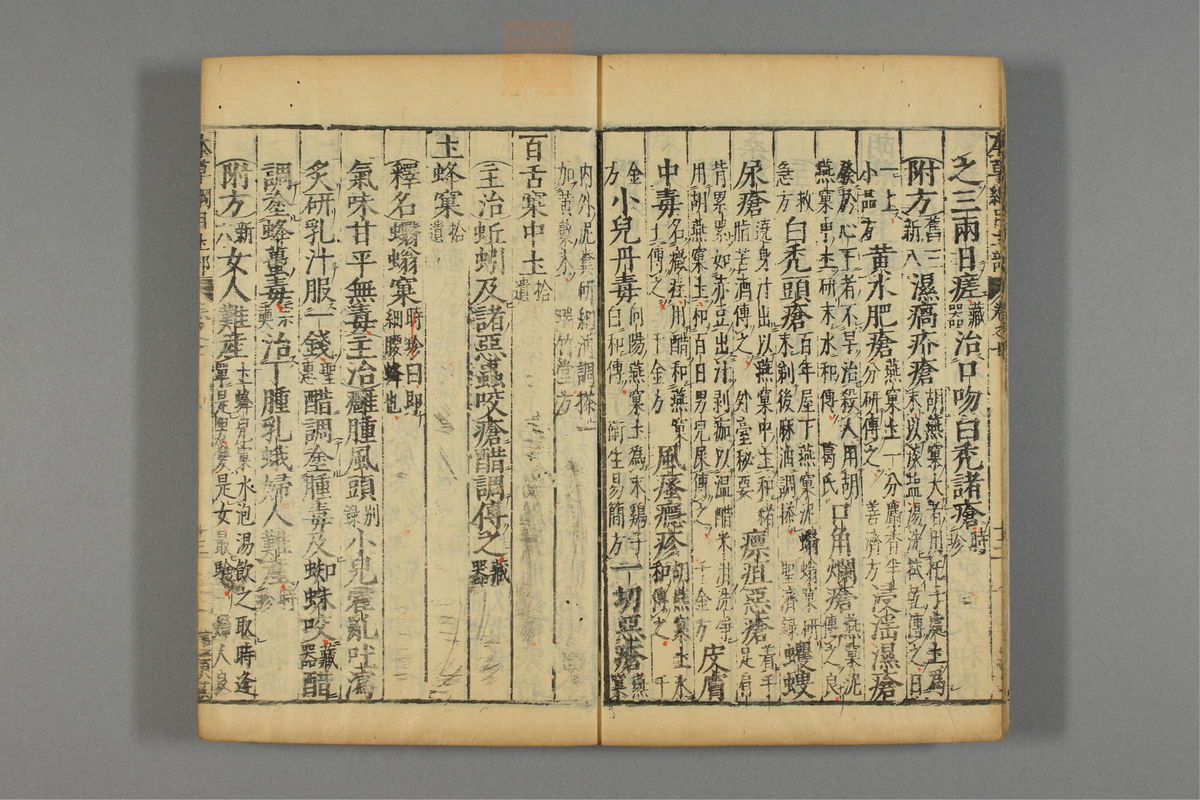 之三兩日瘥藏器治口吻白禿諸瘡時珍
附方舊三新八濕瘑疥瘡胡燕窠大者用托子處土為末以淡鹽湯洗拭乾傅之日
一上小品方黃水肥瘡燕窠土一分麝香半分研傅之善濟方浸淫濕瘡
發於心下者不早治殺人用胡燕窠中土研末水和傅葛氏口角爛瘡燕窠泥傅之良
救急方白禿頭瘡百年屋下燕窠泥蠮螉窠研末剃後麻油調搽聖濟錄蠼螋
尿瘡遶身汁出以燕窠中土和豬脂苦酒傅之外臺秘要瘭疽惡瘡著手足肩
背累累如赤豆出汁剥痂以溫醋米泔洗淨用胡燕窠土和百日男兒屎傅之千金方皮膚
中毒名㿀疰用醋和燕窠土傅之千金方風瘙癮疹胡燕窠土水和傅之千
金方小兒丹毒向陽燕窠土為末雞子白和傅衛生易簡方一切惡瘡燕窠
內外泥糞研細油調搽一加黃蘗末瑞竹堂方
百舌窠中土拾遺
主治蚯蚓及諸惡蟲咬瘡醋調傅之藏器
土蜂窠拾遺
釋名蠮螉窠時珍曰即細腰蜂也
氣味甘平無毒主治癰腫風頭別錄小兒霍亂吐瀉
炙研乳汁服一錢聖惠醋調塗腫毒及蜘蛛咬藏器醋
調塗蜂蠆毒宗奭治丁腫乳蛾婦人難產時珍
附方新六女人難產土蜂兒窠水泡湯飲之取時逢單是男雙是女最驗婦人良